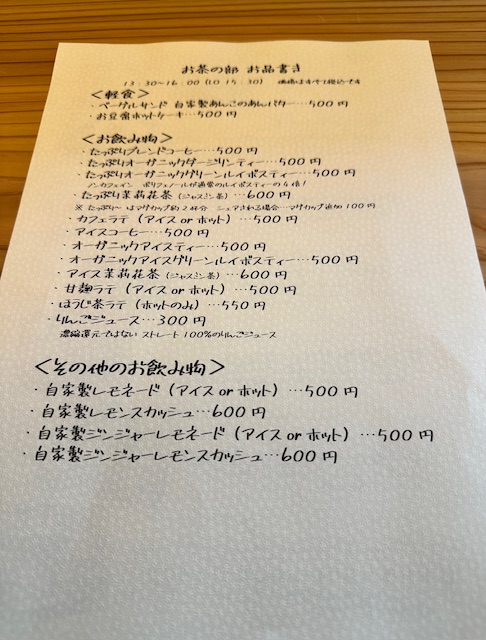 お茶の部 お品書き
13:30~16:00 (LO 15:30) 価格はすべて税込です
<軽食>
・ベーグルサンド 自家製あんこのあんバター…500円
・お豆腐ホットケーキ…500円
<お飲み物>
・たっぷりブレンドコーヒー…500円
・たっぷりオーガニックダージリンティー…500円
・たっぷりオーガニックグリーンルイボスティー…500円
ノンカフェイン ポリフェノールが通常のルイボスティーの4倍!
・たっぷり茉莉花茶(ジャスミン茶)…600円
※ たっぷり~はマグカップ約2杯分 シェアされる場合…マグカップ追加100円
・カフェラテ(アイスorホット)…500円
・アイスコーヒー…500円
・オーガニックアイスティー…500円
・オーガニックアイスグリーンルイボスティー…500円
・アイス茉莉花茶(ジャスミン茶)…600円
・甘麹ラテ(アイスorホット)…500円
・ほうじ茶ラテ(ホットのみ)…550円
・りんごジュース…300円
濃縮還元ではない ストレート100%のりんごジュース
<その他のお飲み物>
・自家製レモネード(アイスorホット)…500円
・自家製レモンスカッシュ…600円
・自家製ジンジャーレモネード(アイスorホット)…500円
・自家製ジンジャーレモンスカッシュ…600円